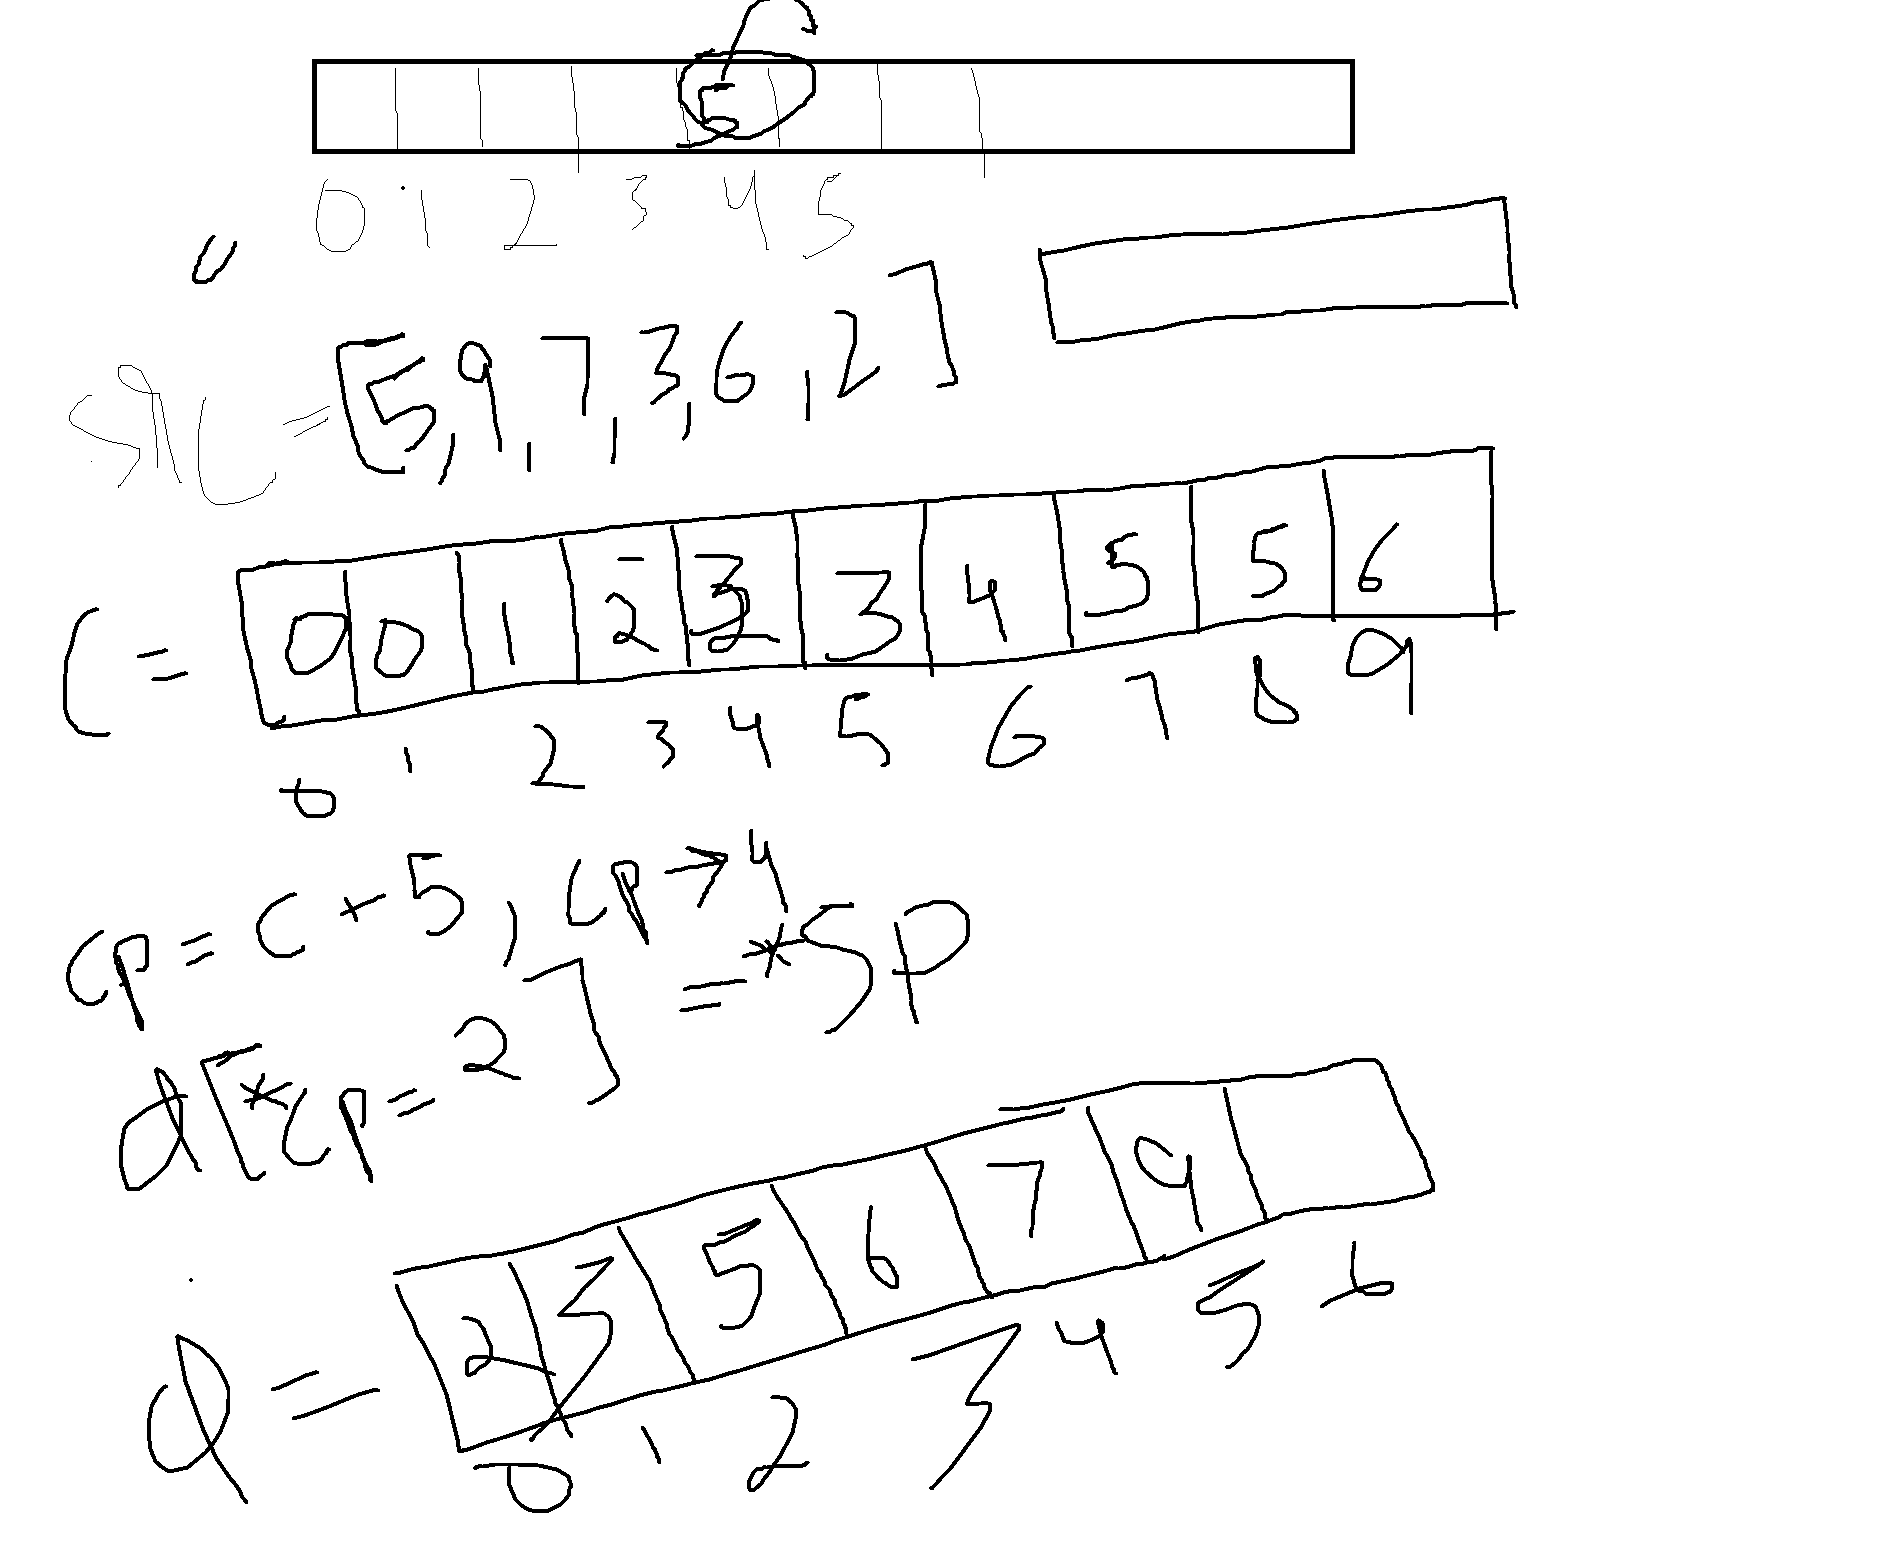 5
0 1 2 3 4 5
src = [5,9,7,3,6,2]
C = 0 0 1 2 3 3 4 5 5 6
0 1 2 3 4 5 6 7 8 9
cp = c + 5, cp → 4
d[*cp = 2] = *sp
d = 2 3 5 6 7 9
0 1 2 3 4 5 6